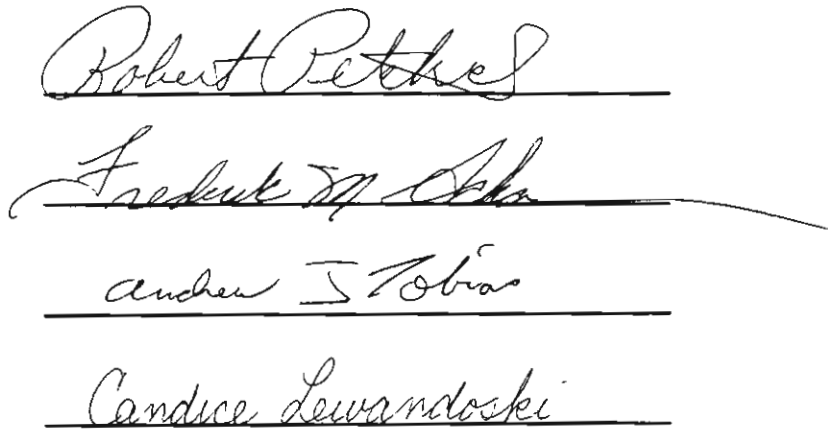 Robert
Frederick M
Andrew J Tobias
Candice Lewandoski